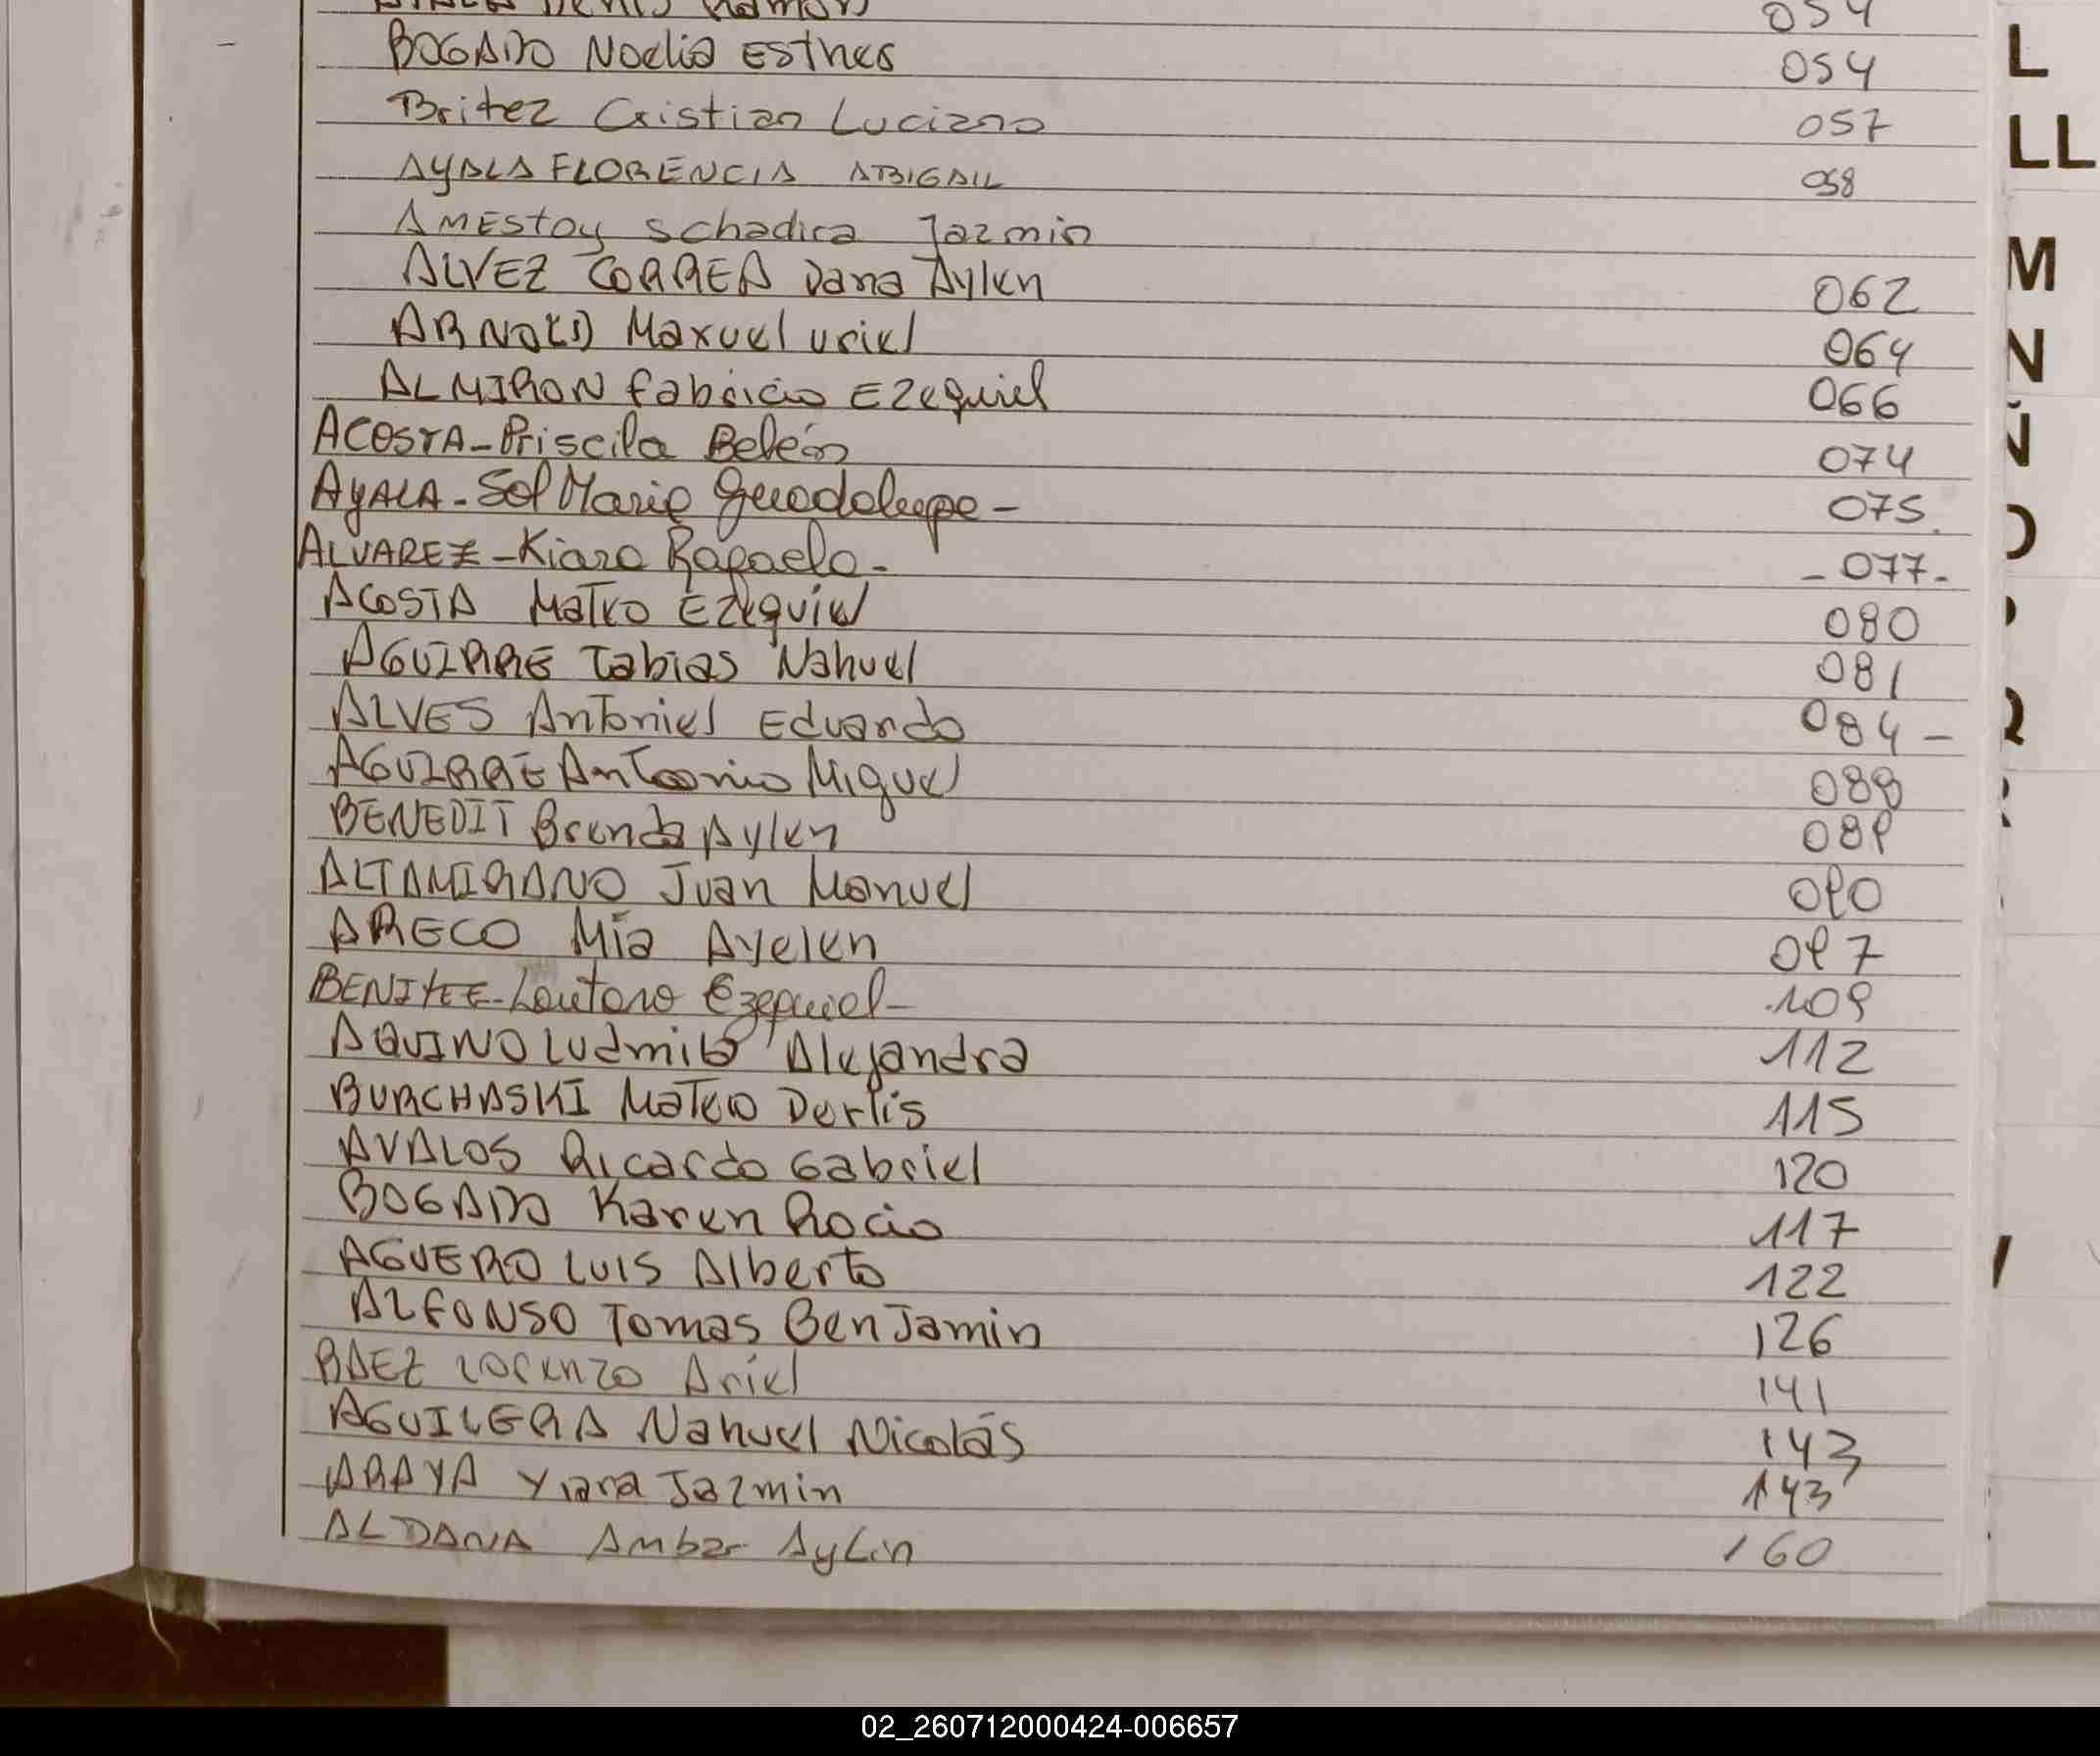 Denis Ramon 054
BOGADO Noelia Esther 054
Britez Cristian Luciano 057
AYALA FLORENCIA ABIGAIL 058
AMEStoy schadica Jazmin
ALVEZ CORREA Dana Aylen 062
ARNOLD Maxuel uriel 064
ALMIRON fabricio EZequiel 066
ACOSTA - Priscila Belén 074
AyALA - Sol Marie Guadalupe - 075.
ALVAREZ - Kiara Rafaela - - 077 -
ACOSTA MaTeo EZequiel 080
AGUIRRE Tobias Nahuel 081
ALVES AnToniel Eduardo 084 -
AGUIRRE Antonio Miguel 088
BENEDIT Brenda Aylen 089
ALTAMIRANO Juan Manuel 090
ARECO Mía Ayelen 097
BENITEZ - Lautaro Ezequiel - 109
AQUINO Ludmila Alejandra 112
BURCHASKI MaTeo Derlis 115
AVALOS Ricardo Gabriel 120
BOGADO Karen Rocio 117
AGUERO LUIS Alberto 122
ALFONSO Tomas BenJamin 126
BAEZ Lorenzo Ariel 141
AGUILERA Nahuel Nicolás 143
ARAYA Yiara Jazmin 143
ALDANA Ambar AyLin 160
L
LL
M
N
Ñ
O
Q
02_260712000424-006657